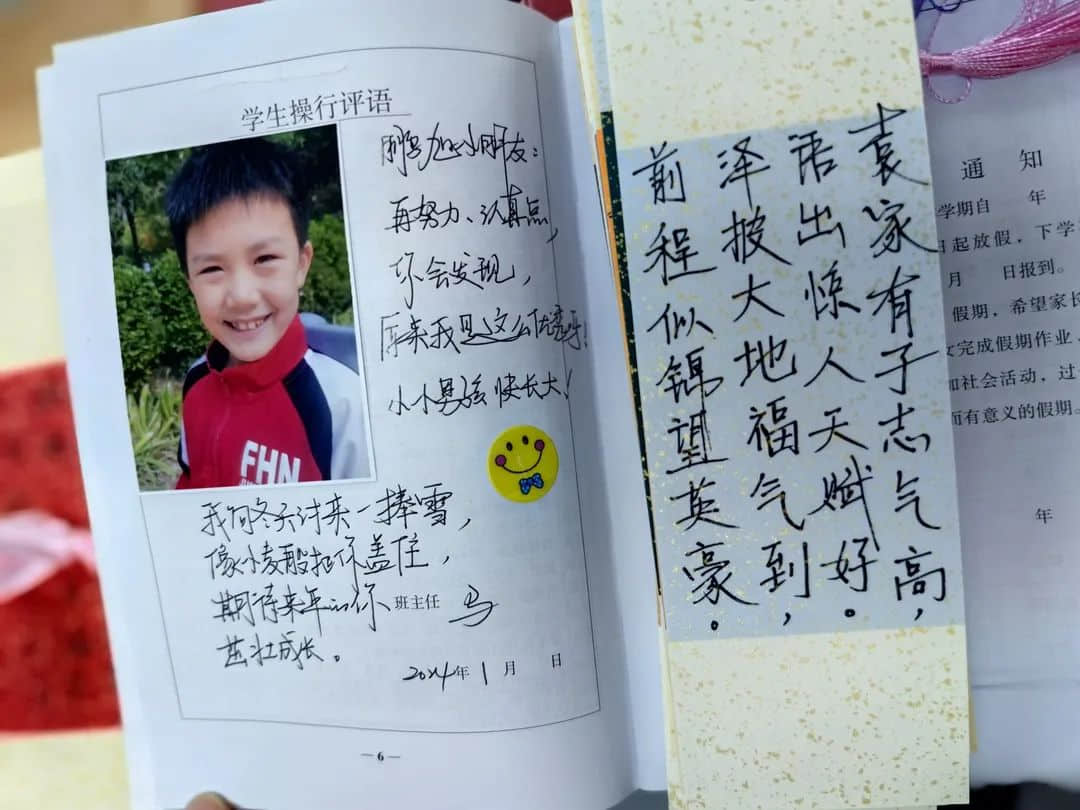 学生操行评语
鹏旭小朋友：
再努力、认真点，
你会发现，
原来我是这么优秀呀！
小小男孩快长大！
FHN
我向冬天讨来一捧雪，
像小麦般把你盖住，
期待来年的你
茁壮成长。
班主任 马
2024年1月 日
—6—
袁家有子志气高，
语出惊人天赋好。
泽披大地福气到，
前程似锦望英豪。
通知
学期自 年
日起放假，下学
月 日报到。
假期，希望家长
女完成假期作业，
加社会活动，过
而有意义的假期。
年